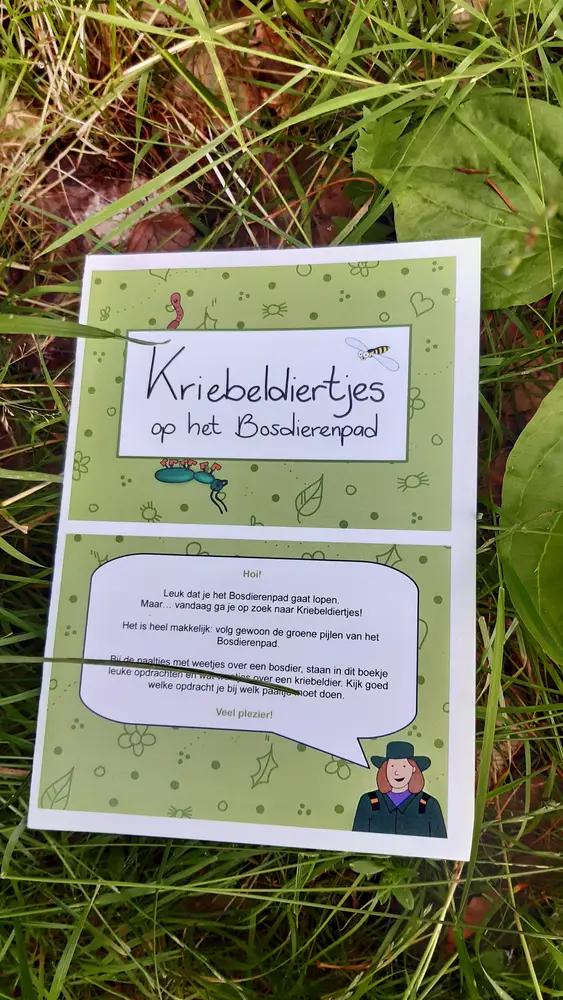 Kriebeldiertjes
op het Bosdierenpad
Hoi!
Leuk dat je het Bosdierenpad gaat lopen.
Maar... vandaag ga je op zoek naar Kriebeldiertjes!
Het is heel makkelijk: volg gewoon de groene pijlen van het
Bosdierenpad.
Bij de paaltjes met weetjes over een bosdier, staan in dit boekje
leuke opdrachten en wat weetjes over een kriebeldier. Kijk goed
welke opdracht je bij welk paaltje moet doen.
Veel plezier!